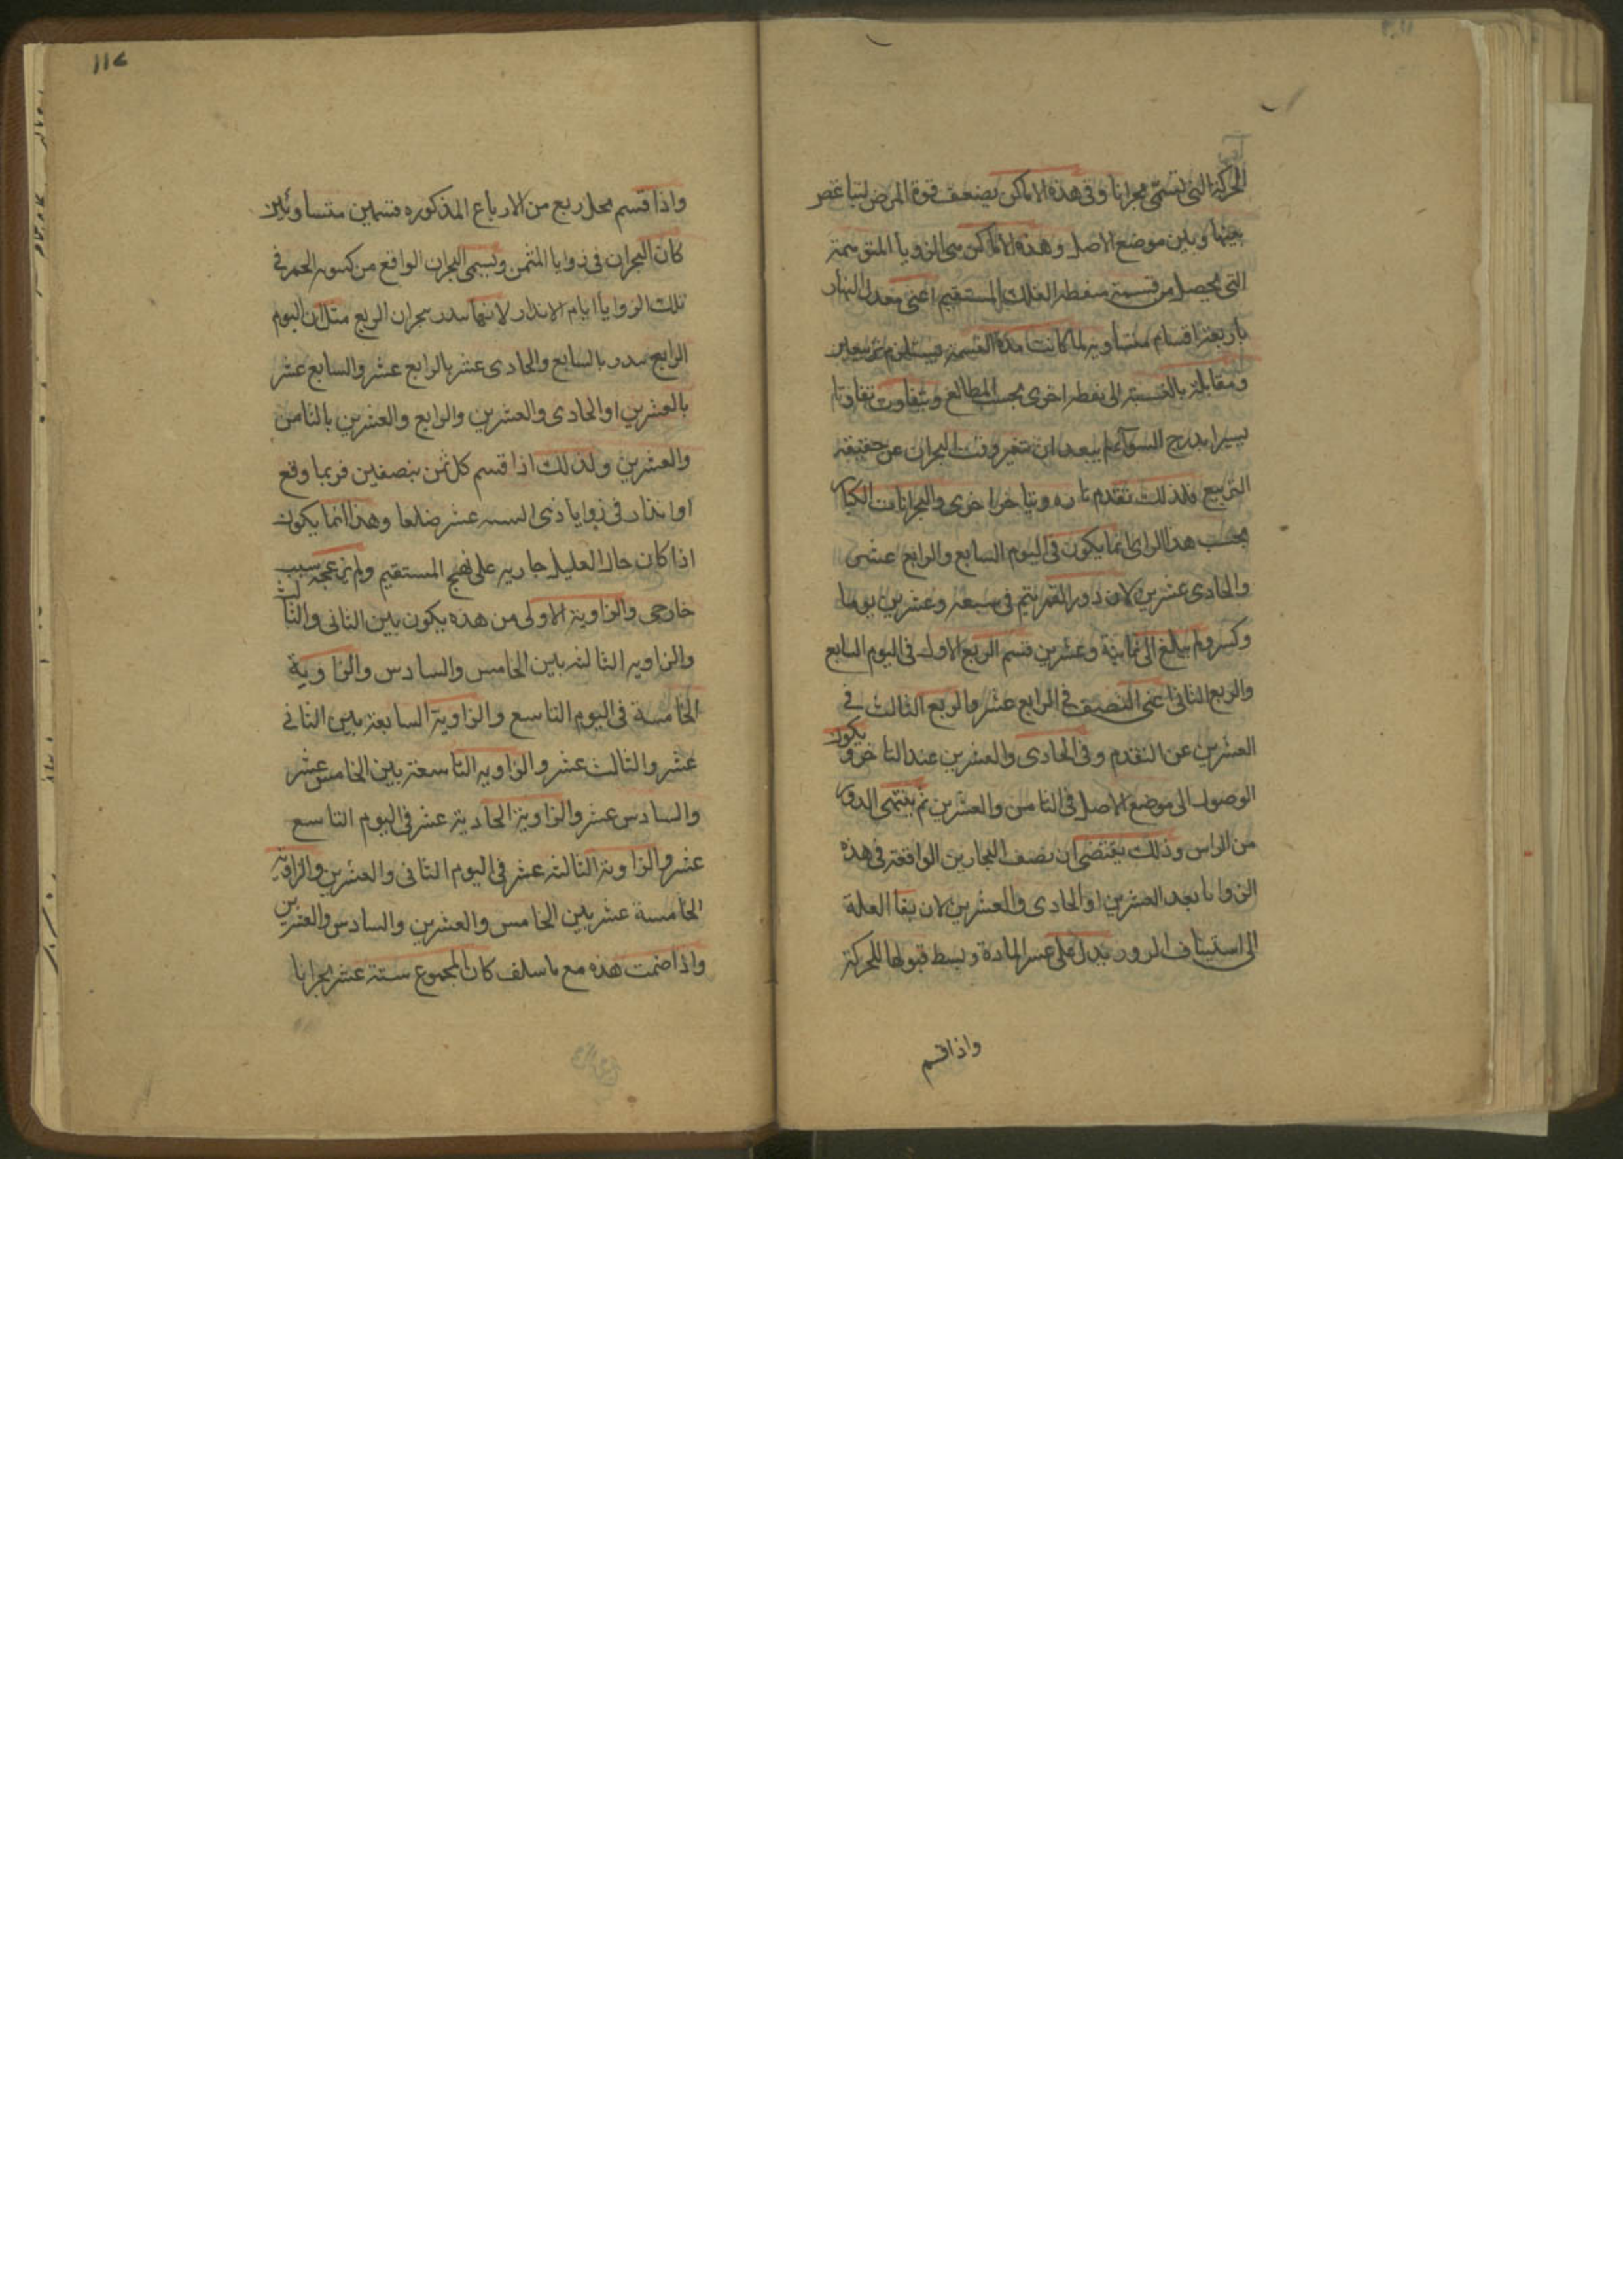 الحركة التى تسمى بحرانا وفى هذه الاماكن يضعف قوة المرض لتباغض
بينها وبين موضع الاصل وهذه الاماكن هى الزوايا
التى يحصل من قسمة منطقة الفلك المستقيم اعنى معدل النهار
باربعة اقسام متساويه لما كانت هذه القسمة يستلزم تربيعين
ومقابلة بالنسبة الى نقطه اخرى بحسب المطالع ويتفاوت تفاوتا
يسيرا بدرج السوآء لم يبعد ان يتغير وقت البحران عن حقيقة
التربيع فلذلك تقدم تاره ويتاخر اخرى والبحرانات الكبار
بحسب هذا الراى انما يكون فى اليوم السابع والرابع عشر
والحادى عشرين لان دور القمر يتم فى سبعه وعشرين يوما
وكسر ولم يبالغ الى ثمانية وعشرين قسم الربع الاول فى اليوم السابع
والربع الثانى اعنى النصف فى الرابع عشر والربع الثالث فى
العشرين عن التقدم وفى الحادى والعشرين عند التاخر ويكون
الوصول الى موضع الاصل فى الثامن والعشرين ثم ينتهى الدور
من الراس وذلك يقتضى ان نصف البحارين الواقعة فى هذه
الزوايا بعد العشرين او الحادى والعشرين لان بقا العلة
الى استيناف الدور يدل على عسر المادة وبسط قبولها للحركة
واذا قسم
١١٧
واذا قسم محل ربع من الارباع المذكوره قسمين متساويين
كان البحران فى زوايا المثمن ويسمى البحران الواقع من كسور القمر فى
تلك الزوايا ايام الانذار لانها تنذر ببحران الربع مثل ان اليوم
الرابع ينذر بالسابع والحادى عشر بالرابع عشر والسابع عشر
بالعشرين او الحادى والعشرين والرابع والعشرين بالثامن
والعشرين ولذلك اذا قسم كل ثمن بنصفين فربما وقع
او انذار فى زوايا ذى الستة عشر ضلعا وهذا انما يكون
اذا كان حال العليل جاريه على نهج المستقيم ولم يزعجه سبب
خارجى والزاوية الاولى من هذه يكون بين الثانى والثالث
والزاويه الثالثه بين الخامس والسادس والزاوية
الخامسة فى اليوم التاسع والزاوية السابعة بين الثانى
عشر والثالث عشر والزاويه التاسعة بين الخامس عشر
والسادس عشر والزاوية الحادية عشر فى اليوم التاسع
عشر والزاوية الثالثه عشر فى اليوم الثانى والعشرين والزاوية
الخامسة عشر بين الخامس والعشرين والسادس والعشرين
واذا ضمت هذه مع ما سلف كان المجموع ستة عشر بحرانا